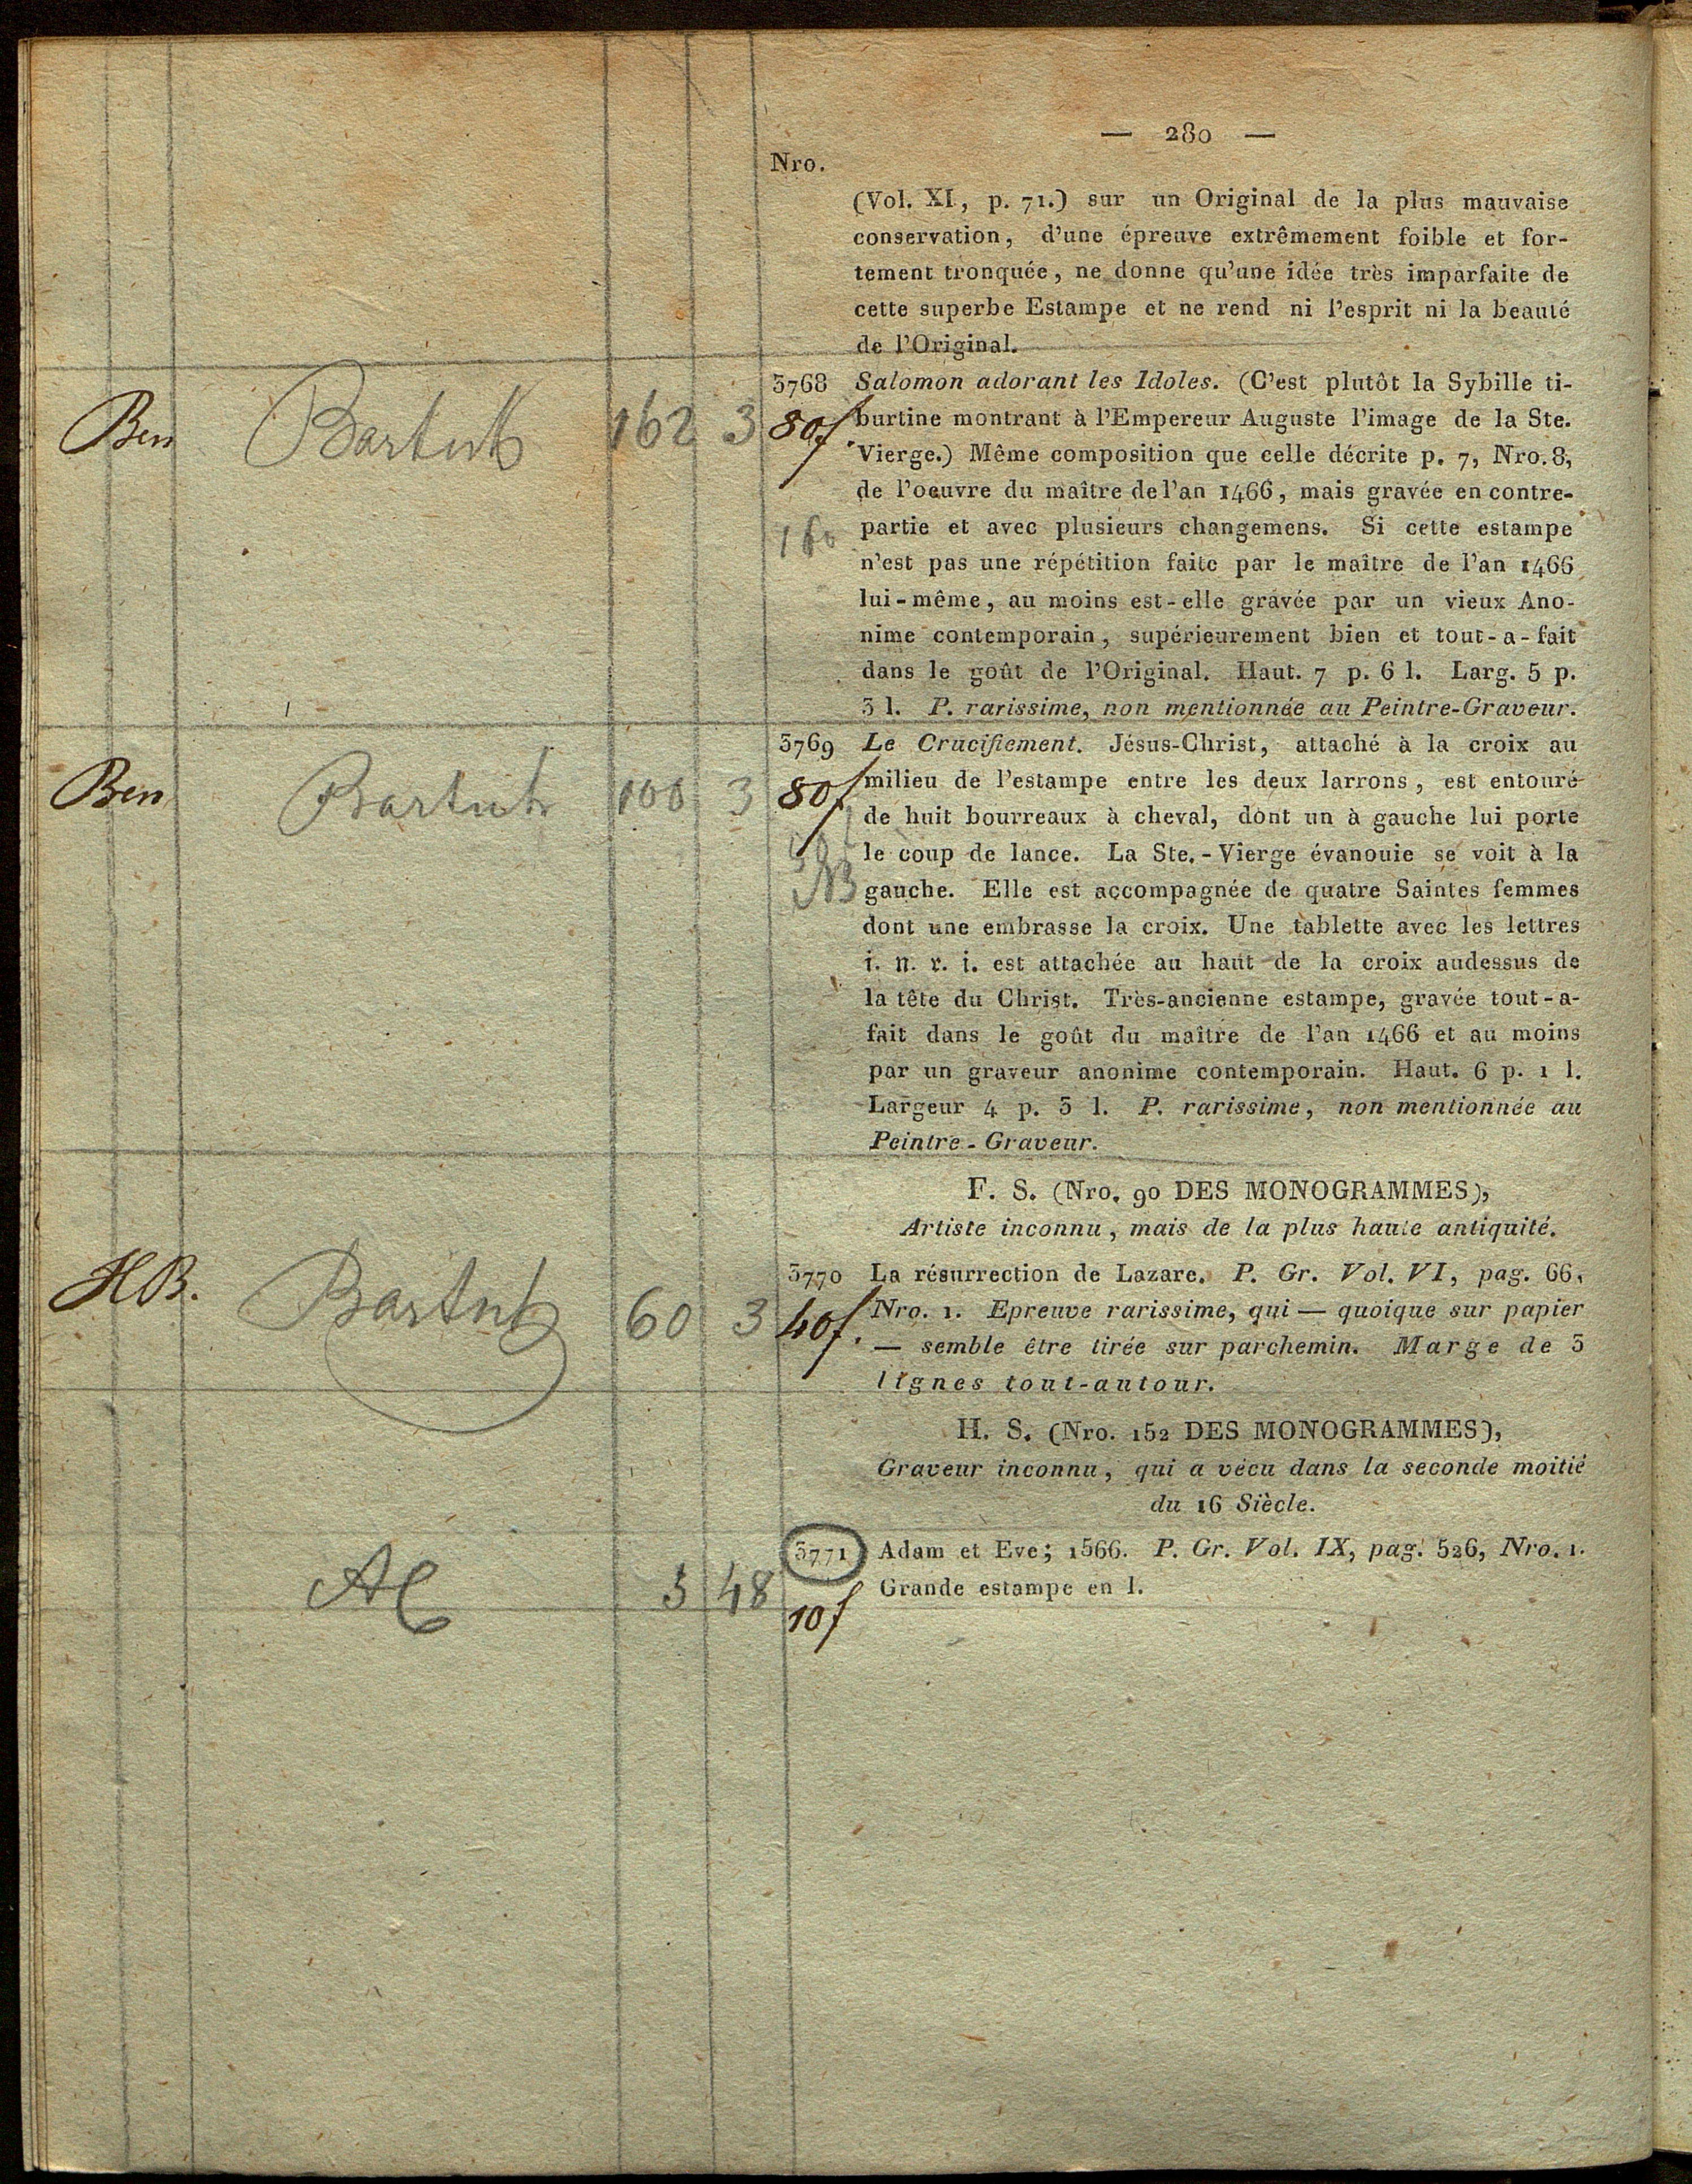 — 280 —
Nro.
(Vol. XI, p. 71.) sur un Original de la plus mauvaise
conservation, d'une épreuve extrêmement foible et for-
tement tronquée, ne donne qu'une idée très imparfaite de
cette superbe Estampe et ne rend ni l'esprit ni la beauté
de l'Original.
3768 Salomon adorant les Idoles. (C'est plutôt la Sybille ti-
Ben 162 3 80f. burtine montrant à l'Empereur Auguste l'image de la Ste.
Vierge.) Même composition que celle décrite p. 7, Nro. 8,
de l'oeuvre du maître de l'an 1466, mais gravée en contre-
160 partie et avec plusieurs changemens. Si cette estampe
n'est pas une répétition faite par le maître de l'an 1466
lui-même, au moins est-elle gravée par un vieux Ano-
nime contemporain, supérieurement bien et tout-a-fait
dans le goût de l'Original. Haut. 7 p. 6 l. Larg. 5 p.
3 l. P. rarissime, non mentionnée au Peintre-Graveur.
3769 Le Crucifiement. Jésus-Christ, attaché à la croix au
Ben 100 3 80f. milieu de l'estampe entre les deux larrons, est entouré
de huit bourreaux à cheval, dont un à gauche lui porte
le coup de lance. La Ste.-Vierge évanouie se voit à la
NB gauche. Elle est accompagnée de quatre Saintes femmes
dont une embrasse la croix. Une tablette avec les lettres
i. n. r. i. est attachée au haut de la croix audessus de
la tête du Christ. Très-ancienne estampe, gravée tout-a-
fait dans le goût du maître de l'an 1466 et au moins
par un graveur anonime contemporain. Haut. 6 p. 1 l.
Largeur 4 p. 3 l. P. rarissime, non mentionnée au
Peintre-Graveur.
F. S. (Nro. 90 DES MONOGRAMMES),
Artiste inconnu, mais de la plus haute antiquité.
3770 La résurrection de Lazare. P. Gr. Vol. VI, pag. 66,
HB. 60 3 40f. Nro. 1. Epreuve rarissime, qui — quoique sur papier
— semble être tirée sur parchemin. Marge de 3
lignes tout-autour.
H. S. (Nro. 152 DES MONOGRAMMES),
Graveur inconnu, qui a vécu dans la seconde moitié
du 16 Siècle.
3771 Adam et Eve; 1566. P. Gr. Vol. IX, pag. 526, Nro. 1.
3 48 Grande estampe en l.
10f